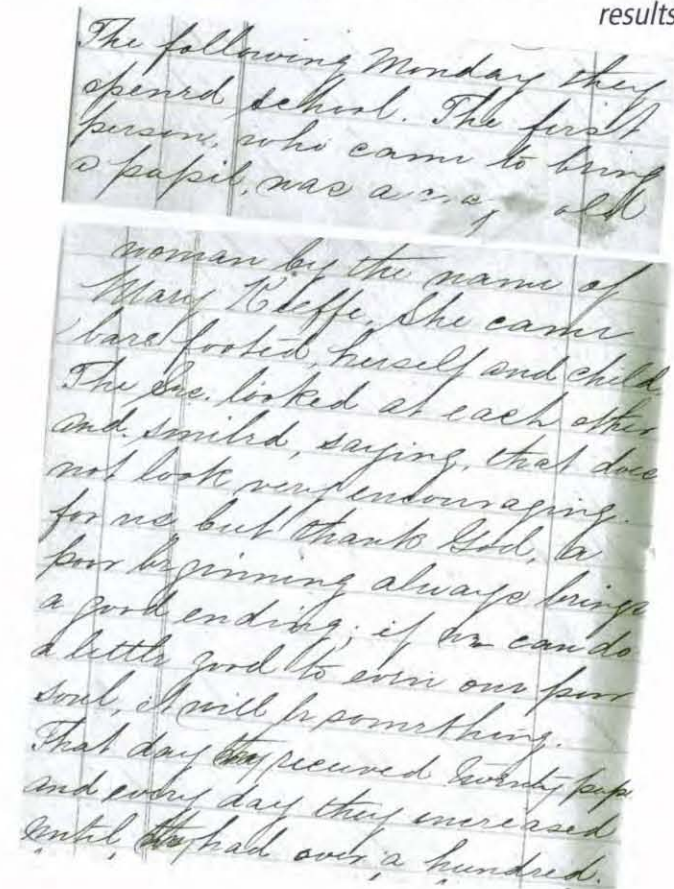 results
The following Monday they
opened school. The first
person, who came to bring
a pupil, was a old
woman by the name of
Mary Kieffe, She came
bare footed, herself and child.
The Srs. looked at each other
and smiled, saying, that does
not look very encouraging.
for us but thank God, a
poor beginning always brings
a good ending; if we can do
a little good to even one poor
soul, it will be something.
That day they received twenty pup.
and every day they increased
until they had over a hundred.